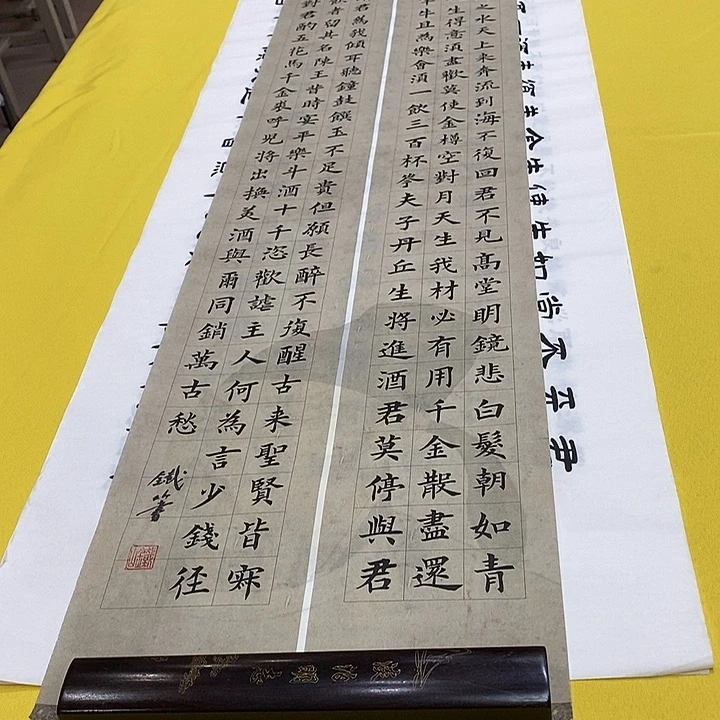 之水天上来奔流到海不復回君不見髙堂明鏡悲白髮朝如青
生得意須盡歡莫使金樽空對月天生我材必有用千金散盡還
牛且爲樂會須一飲三百杯岑夫子丹丘生將進酒君莫停與君
君爲我傾耳聽鐘鼓饌玉不足貴但願長醉不復醒古来聖賢皆寂
者留其名陳王昔時宴平樂斗酒十千恣歡謔主人何為言少錢徑
對君酌五花馬千金裘呼兒將出換美酒與爾同銷萬古愁
鐵